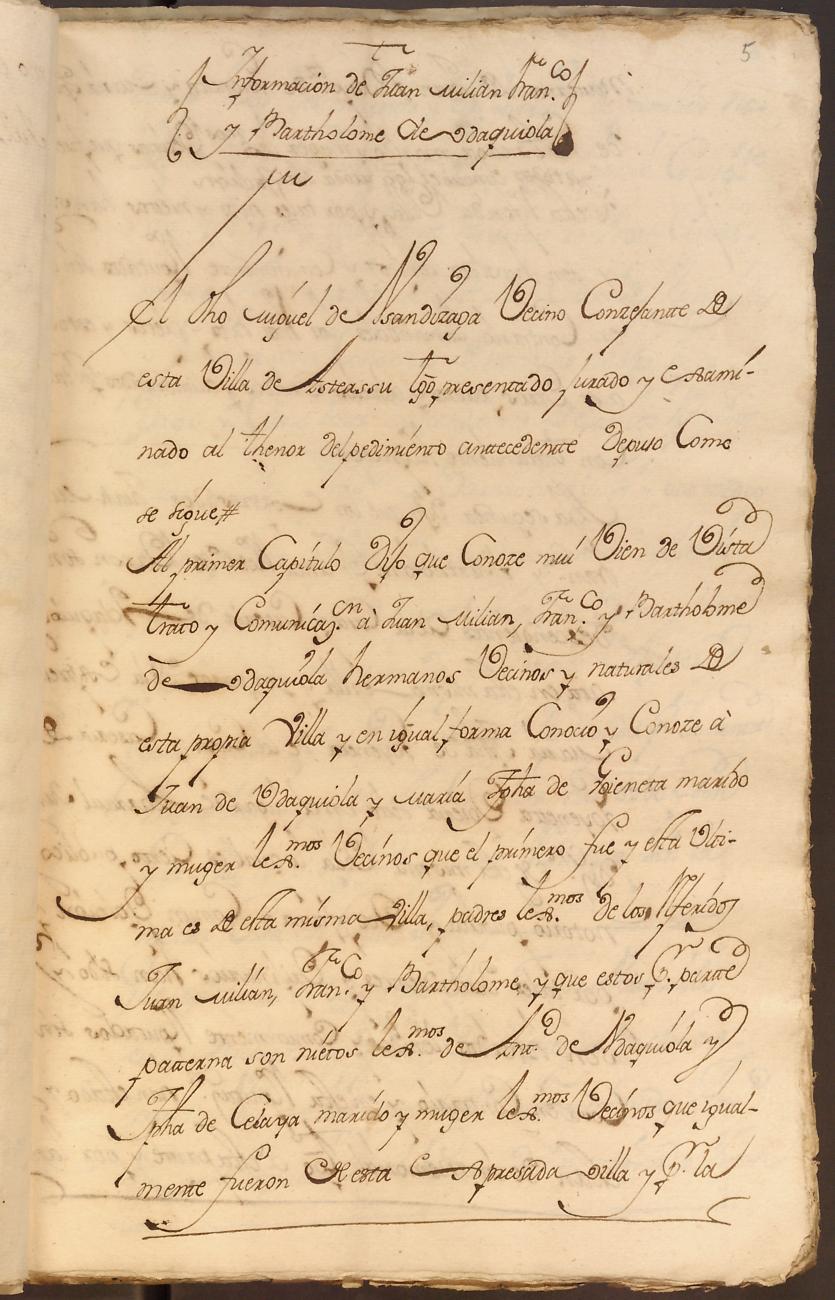 5
Informacion de Juan Milian Fran.co
y Bartholome de Odaquiola
El dho Miguel de Alsandizaga Vecino Conzejante de
esta Villa de Asteassu tgo presentado, jurado y exami-
nado al thenor del pedimiento antecedente depuso Como
se sigue#
Al primer Capitulo Dijo que Conoze mui Vien de Vista
trato y Comunicaz.on à Juan Milian, Fran.co y Bartholome
de Odaquiola hermanos Vecinos y naturales de
esta propia Villa y en igual forma Conocio y Conoze à
Juan de Odaquiola y Maria Jpha de marido
y muger lex.mos Vecinos que el primero fue y esta Ulti-
ma es de esta misma Villa, padres lex.mos de los Referidos
Juan Milian, Fran.co y Bartholome, y que estos p.r parte
patterna son nietos lex.mos de Ant.o de Odaquiola y
Jpha de Celaya marido y muger lex.mos Vecinos que igual-
mente fueron de esta expresada Villa y p.r la